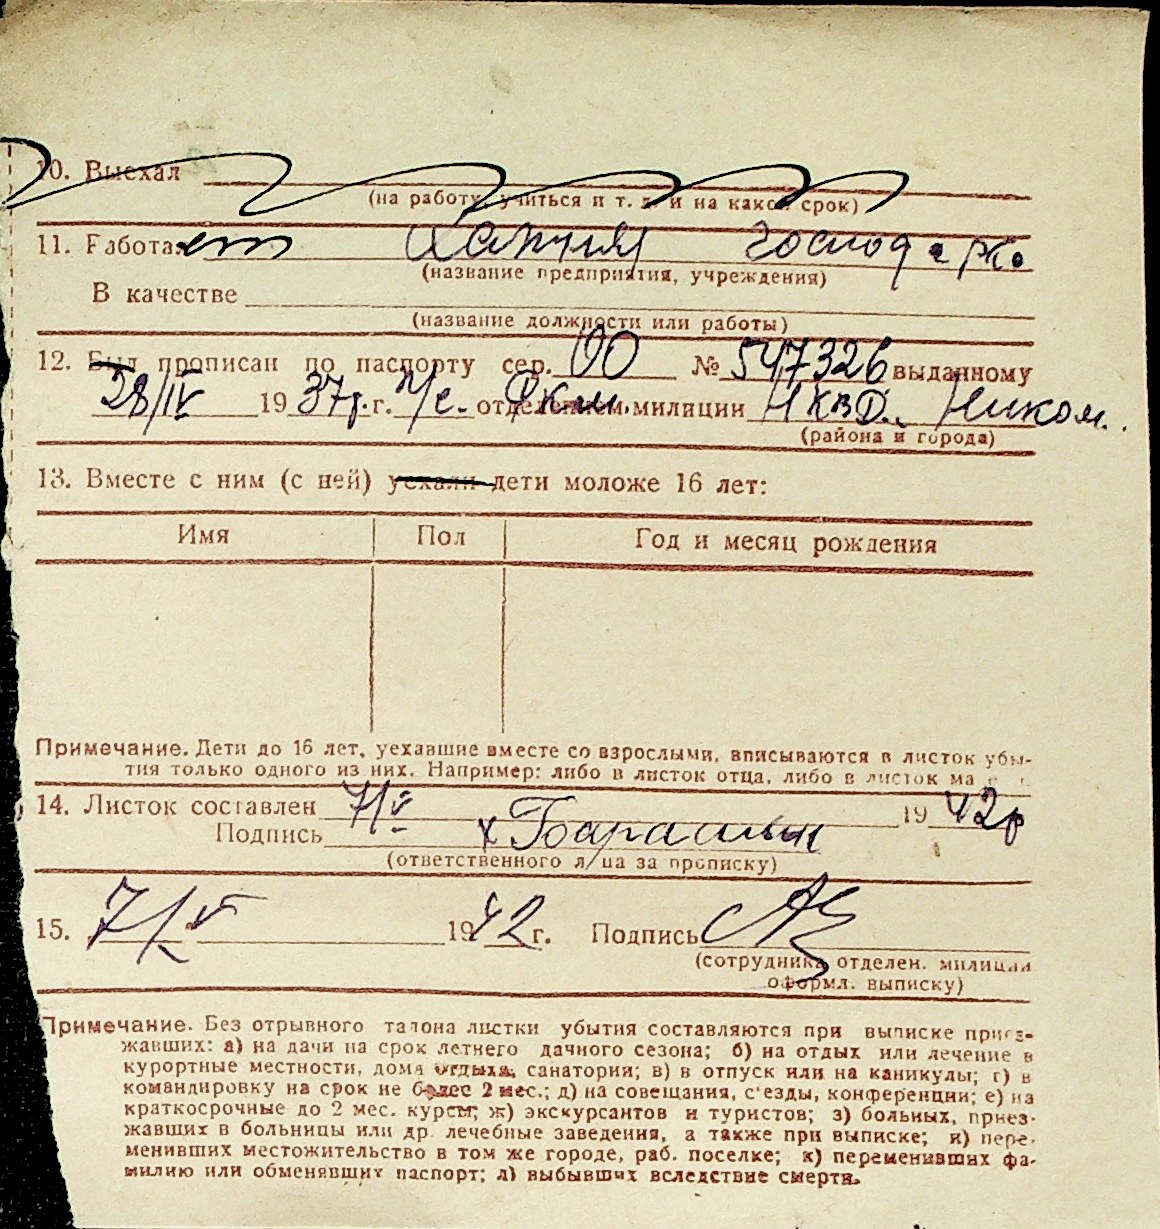 10. Выехал
(на работу, учиться и т. д. и на какой срок)
11. Работает Хатняя господарка
(название предприятия, учреждения)
В качестве
(название должности или работы)
12. Был прописан по паспорту сер. ОО № 547326 выданному
28/IV 1937г. г. н/с. отделением милиции НКВД. Ником.
(района и города)
13. Вместе с ним (с ней) уехали дети моложе 16 лет:
Имя Пол Год и месяц рождения
Примечание. Дети до 16 лет, уехавшие вместе со взрослыми, вписываются в листок убы-
тия только одного из них. Например: либо в листок отца, либо в листок ма
14. Листок составлен 7/V 1942г
Подпись
(ответственного лица за прописку)
15. 7/V 1942 г. Подпись
(сотрудника отделен. милиции
оформл. выписку)
Примечание. Без отрывного талона листки убытия составляются при выписке приез-
жавших: а) на дачи на срок летнего дачного сезона; б) на отдых или лечение в
курортные местности, дома отдыха, санатории; в) в отпуск или на каникулы; г) в
командировку на срок не более 2 мес.; д) на совещания, с'езды, конференции; е) на
краткосрочные до 2 мес. курсы; ж) экскурсантов и туристов; з) больных, приез-
жавших в больницы или др. лечебные заведения, а также при выписке; и) пере-
менивших местожительство в том же городе, раб. поселке; к) переменивших фа-
милию или обменявших паспорт; л) выбывших вследствие смерти.